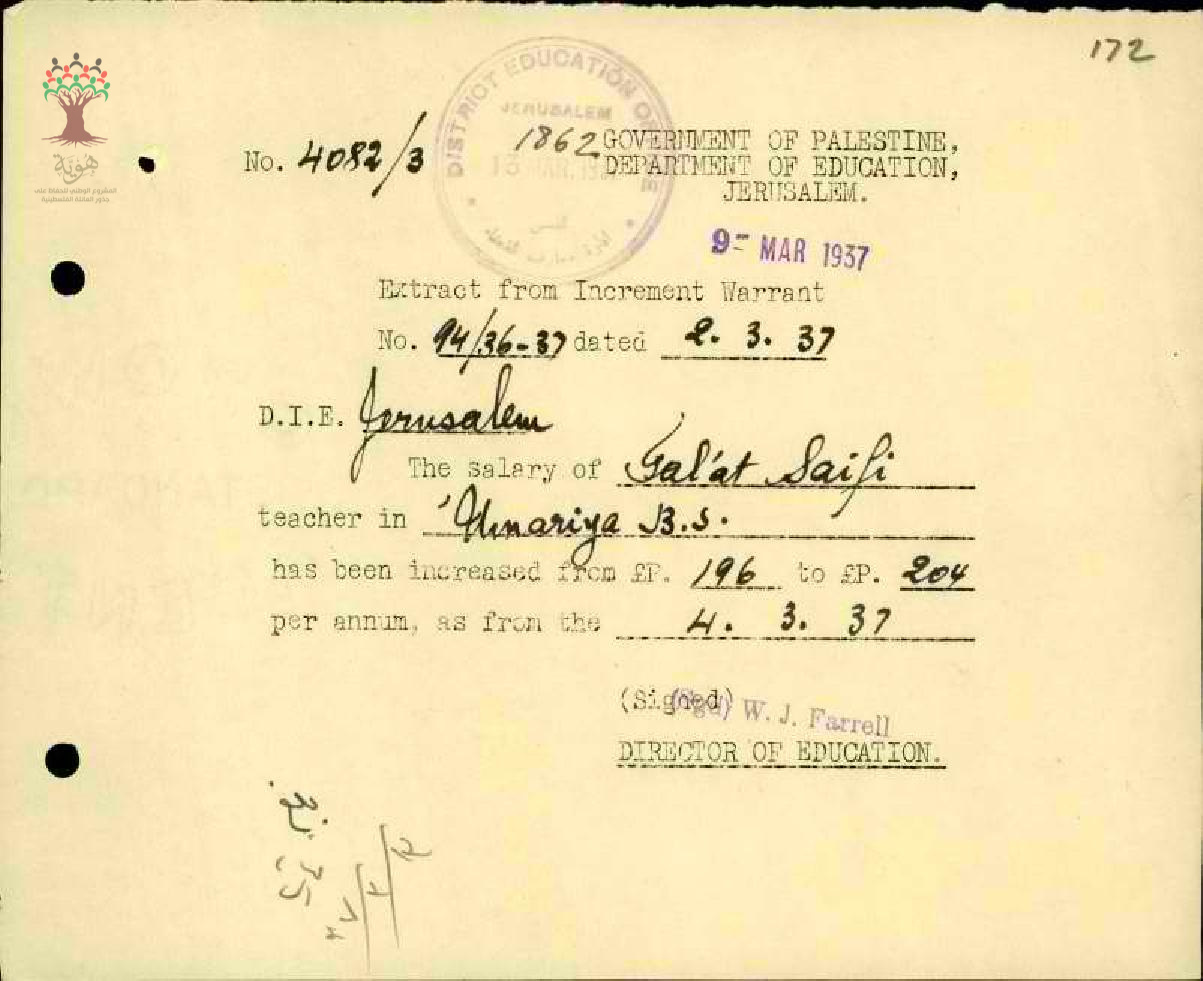 172
هوية
المشروع الوطني للحفاظ على
جذور العائلة الفلسطينية
DISTRICT EDUCATION
JERUSALEM
13 MAR. 193
1862
No. 4082/3
GOVERNMENT OF PALESTINE,
DEPARTMENT OF EDUCATION,
JERUSALEM.
9- MAR 1937
Extract from Increment Warrant
No. 94/36-37 dated 2. 3. 37
D.I.E. Jerusalem
The salary of Tal'at Saifi
teacher in 'Umariya B.S.
has been increased from £P. 196 to £P. 204
per annum, as from the 4. 3. 37
(Signed)
(Sgd) W. J. Farrell
DIRECTOR OF EDUCATION.